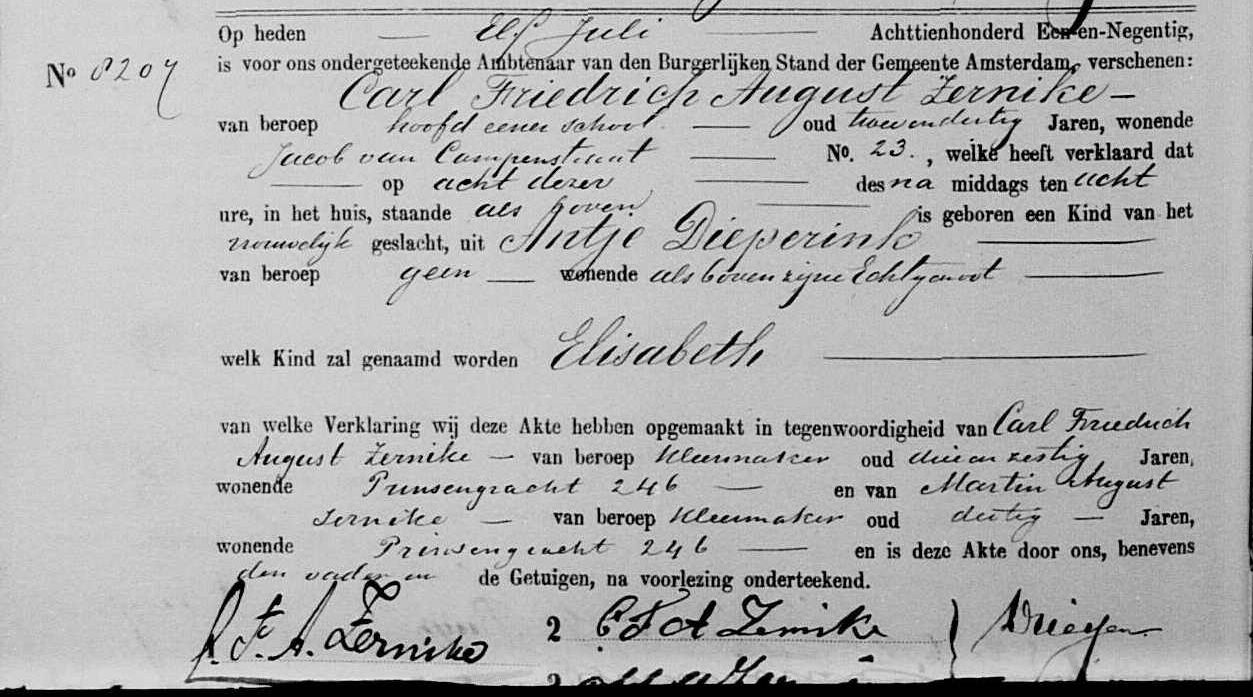 Op heden — Elf Juli — Achttienhonderd Een-en-Negentig,
No 8207 is voor ons ondergeteekende Ambtenaar van den Burgerlijken Stand der Gemeente Amsterdam, verschenen:
Carl Friedrich August Zernike —
van beroep hoofd eener school — oud twee en dertig Jaren, wonende
Jacob van Campenstraat — No. 23. , welke heeft verklaard dat
— op acht dezer — des na middags ten acht
ure, in het huis, staande als boven — is geboren een Kind van het
vrouwelijk geslacht, uit Antje Dieperink —
van beroep geen — wonende als boven zijne Echtgenoot —
welk Kind zal genaamd worden Elisabeth —
van welke Verklaring wij deze Akte hebben opgemaakt in tegenwoordigheid van Carl Friedrich
August Zernike — van beroep kleermaker oud drie en zestig Jaren,
wonende Prinsengracht 246 — en van Martin August
Zernike — van beroep kleermaker oud dertig — Jaren,
wonende Prinsengracht 246 — en is deze Akte door ons, benevens
den vader en de Getuigen, na voorlezing onderteekend.
C. F. A. Zernike 2 C F A Zernike